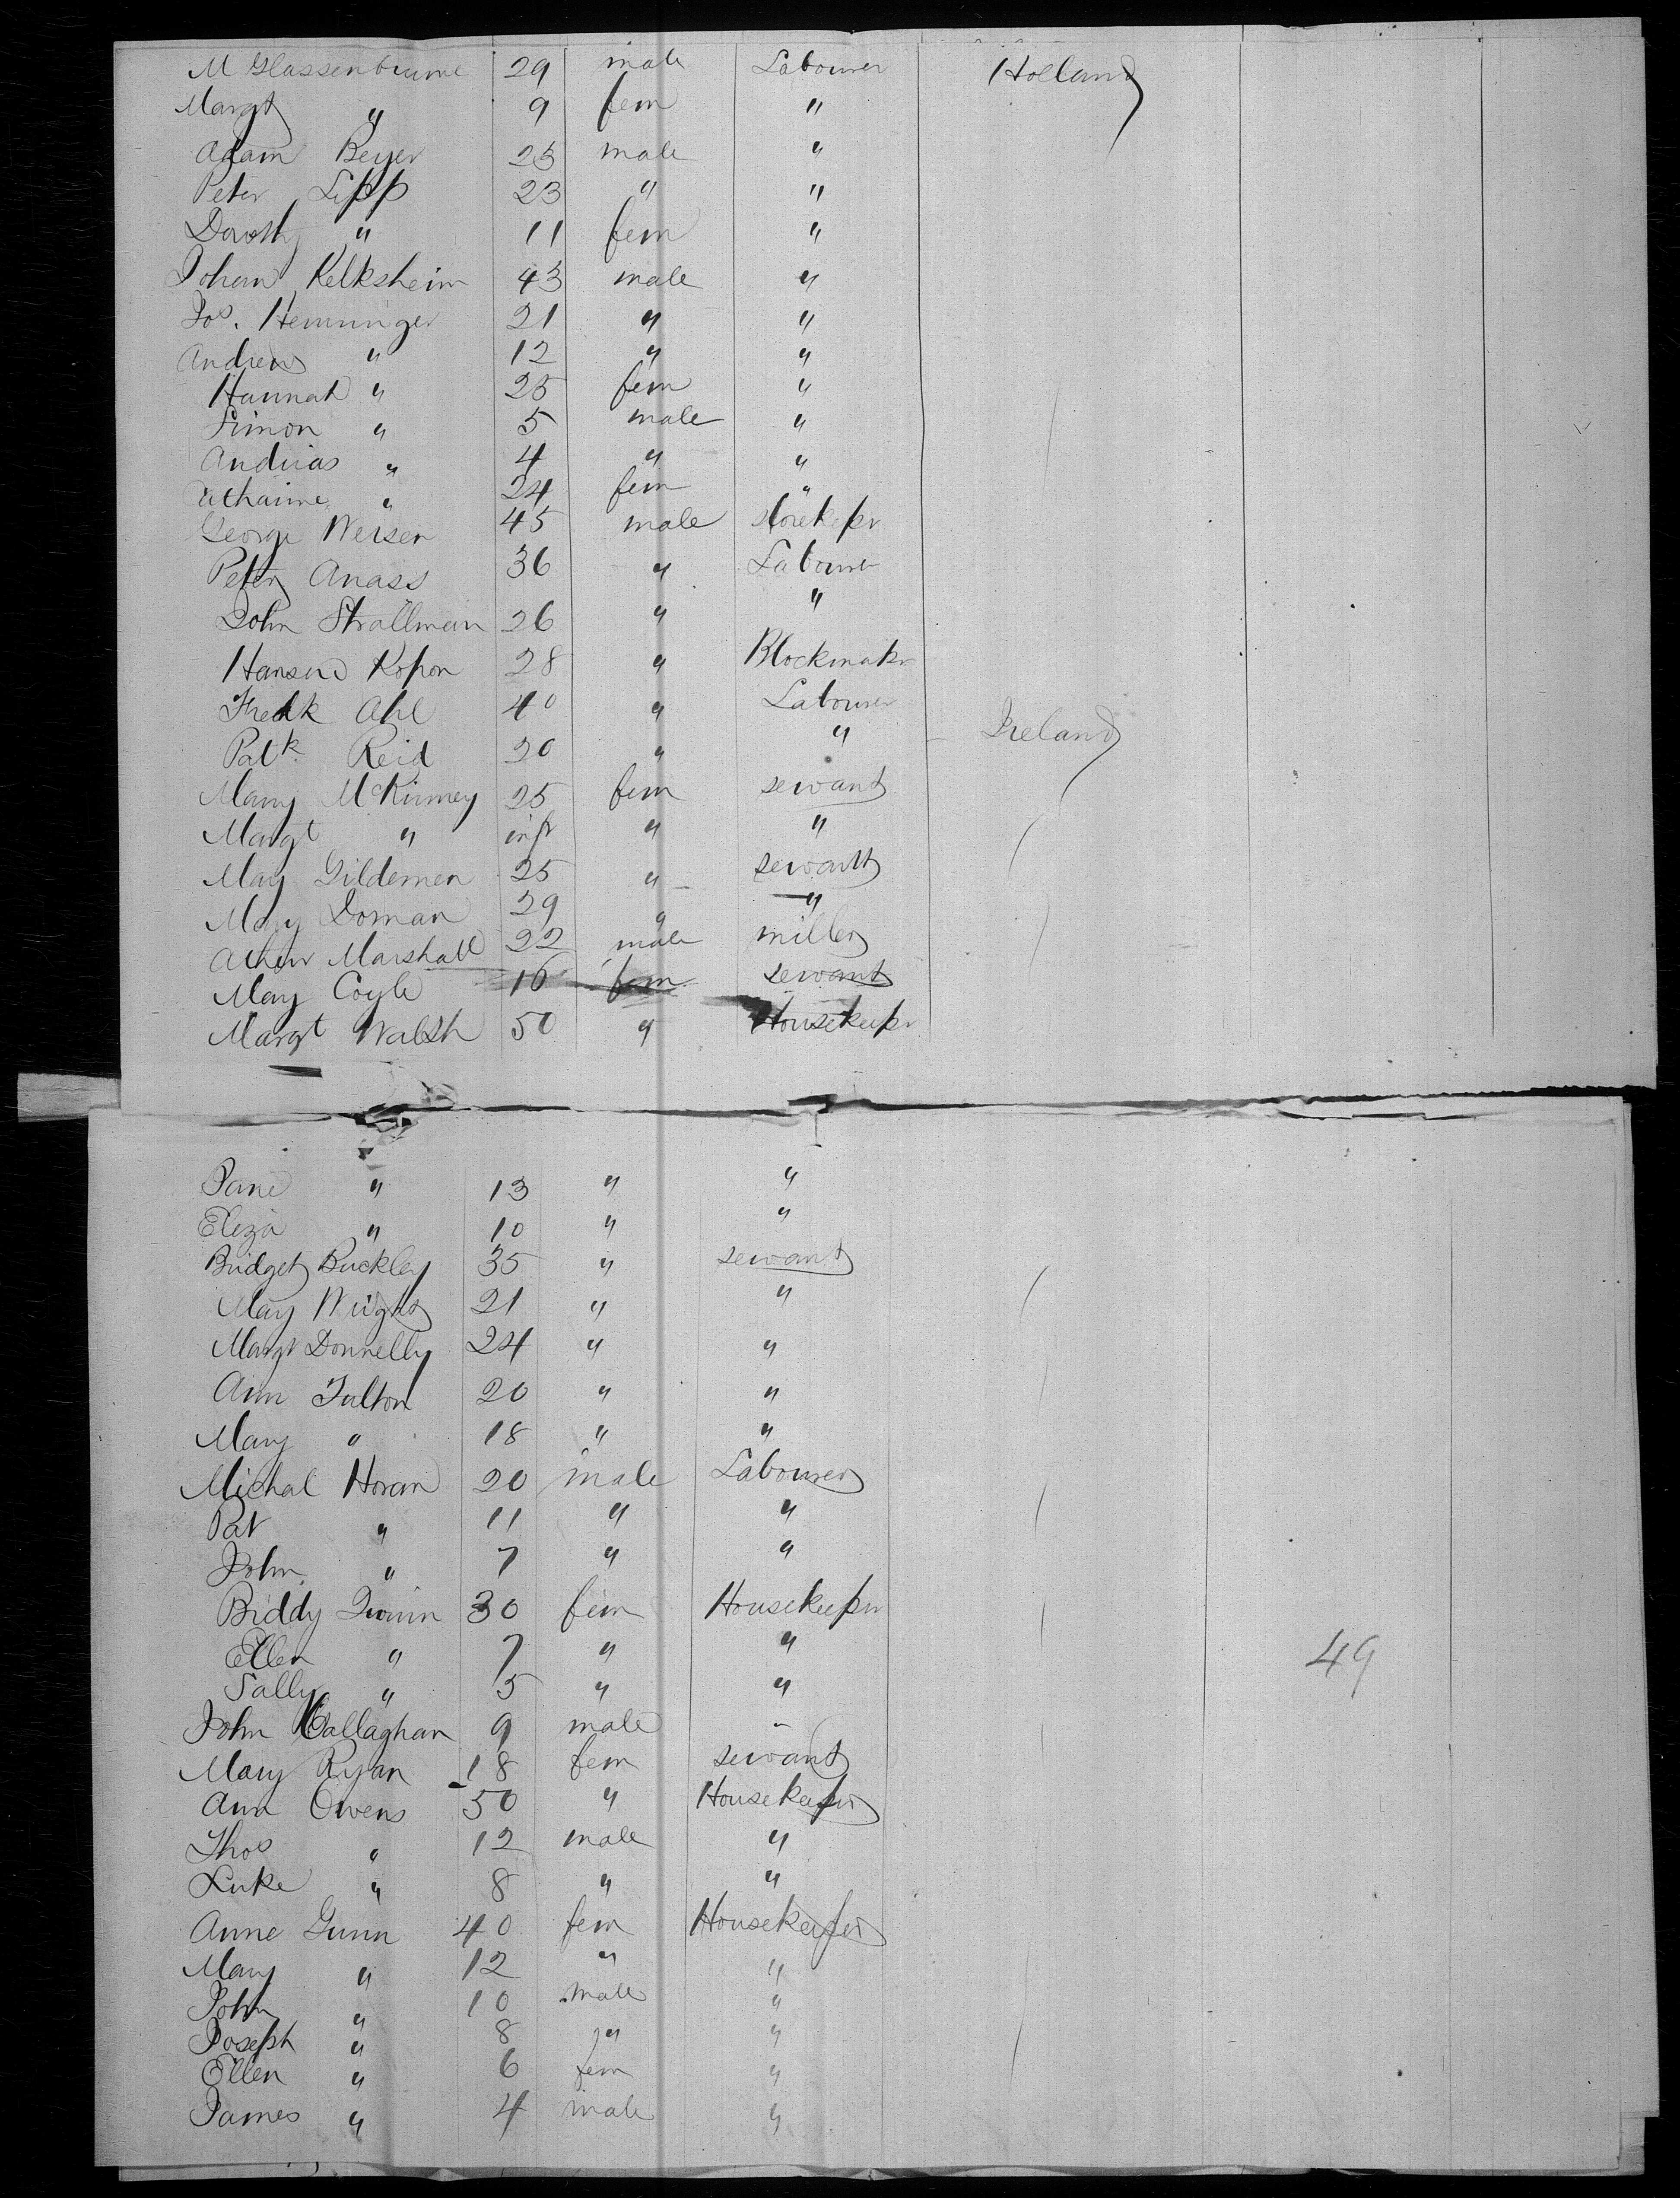 M Glassenbrume 29 male Labourer Holland
Margt " 9 fem "
Adam Beyer 23 male "
Peter Lipp 23 " "
Dorothy " 11 fem "
Johan Kelksheim 43 male "
Jos. Hemminger 21 " "
Andrew " 12 " "
Hannah " 25 fem "
Simon " 5 male "
Andrias " 4 " "
Catharine " 24 fem "
George Weisen 45 male storekepr
Peter Anass 36 " Labourer
John Strallmein 26 " "
Hansen Kopon 28 " Blockmakr
Fredk Ahl 40 " Labourer
Patk. Reid 20 " " Ireland
Mary McKinney 25 fem servant
Margt " inft " "
May Gildemen 25 " servant
May Dornan 29 " "
Athur Marshall 22 male miller
May Coyle 16 fem servant
Margt Walsh 50 " Housekeepr
Jane " 13 " "
Eliza " 10 " "
Bridget Buckley 35 " servant
May Wright 21 " "
Margt Donnelly 24 " "
Ann Fulton 20 " "
Mary " 18 " "
Michal Horan 20 male Labourer
Pat " 11 " "
John " 7 " "
Biddy Quinn 30 fem Housekeepr
Ellen " 7 " " 49
Sally " 5 " "
John Callaghan 9 male "
Mary Ryan 18 fem servant
Ann Owens 50 " Housekeeper
Thos " 12 male "
Luke " 8 " "
Anne Gunn 40 fem Housekeeper
Mary " 12 " "
John " 10 male "
Joseph " 8 " "
Ellen " 6 fem "
James " 4 male "